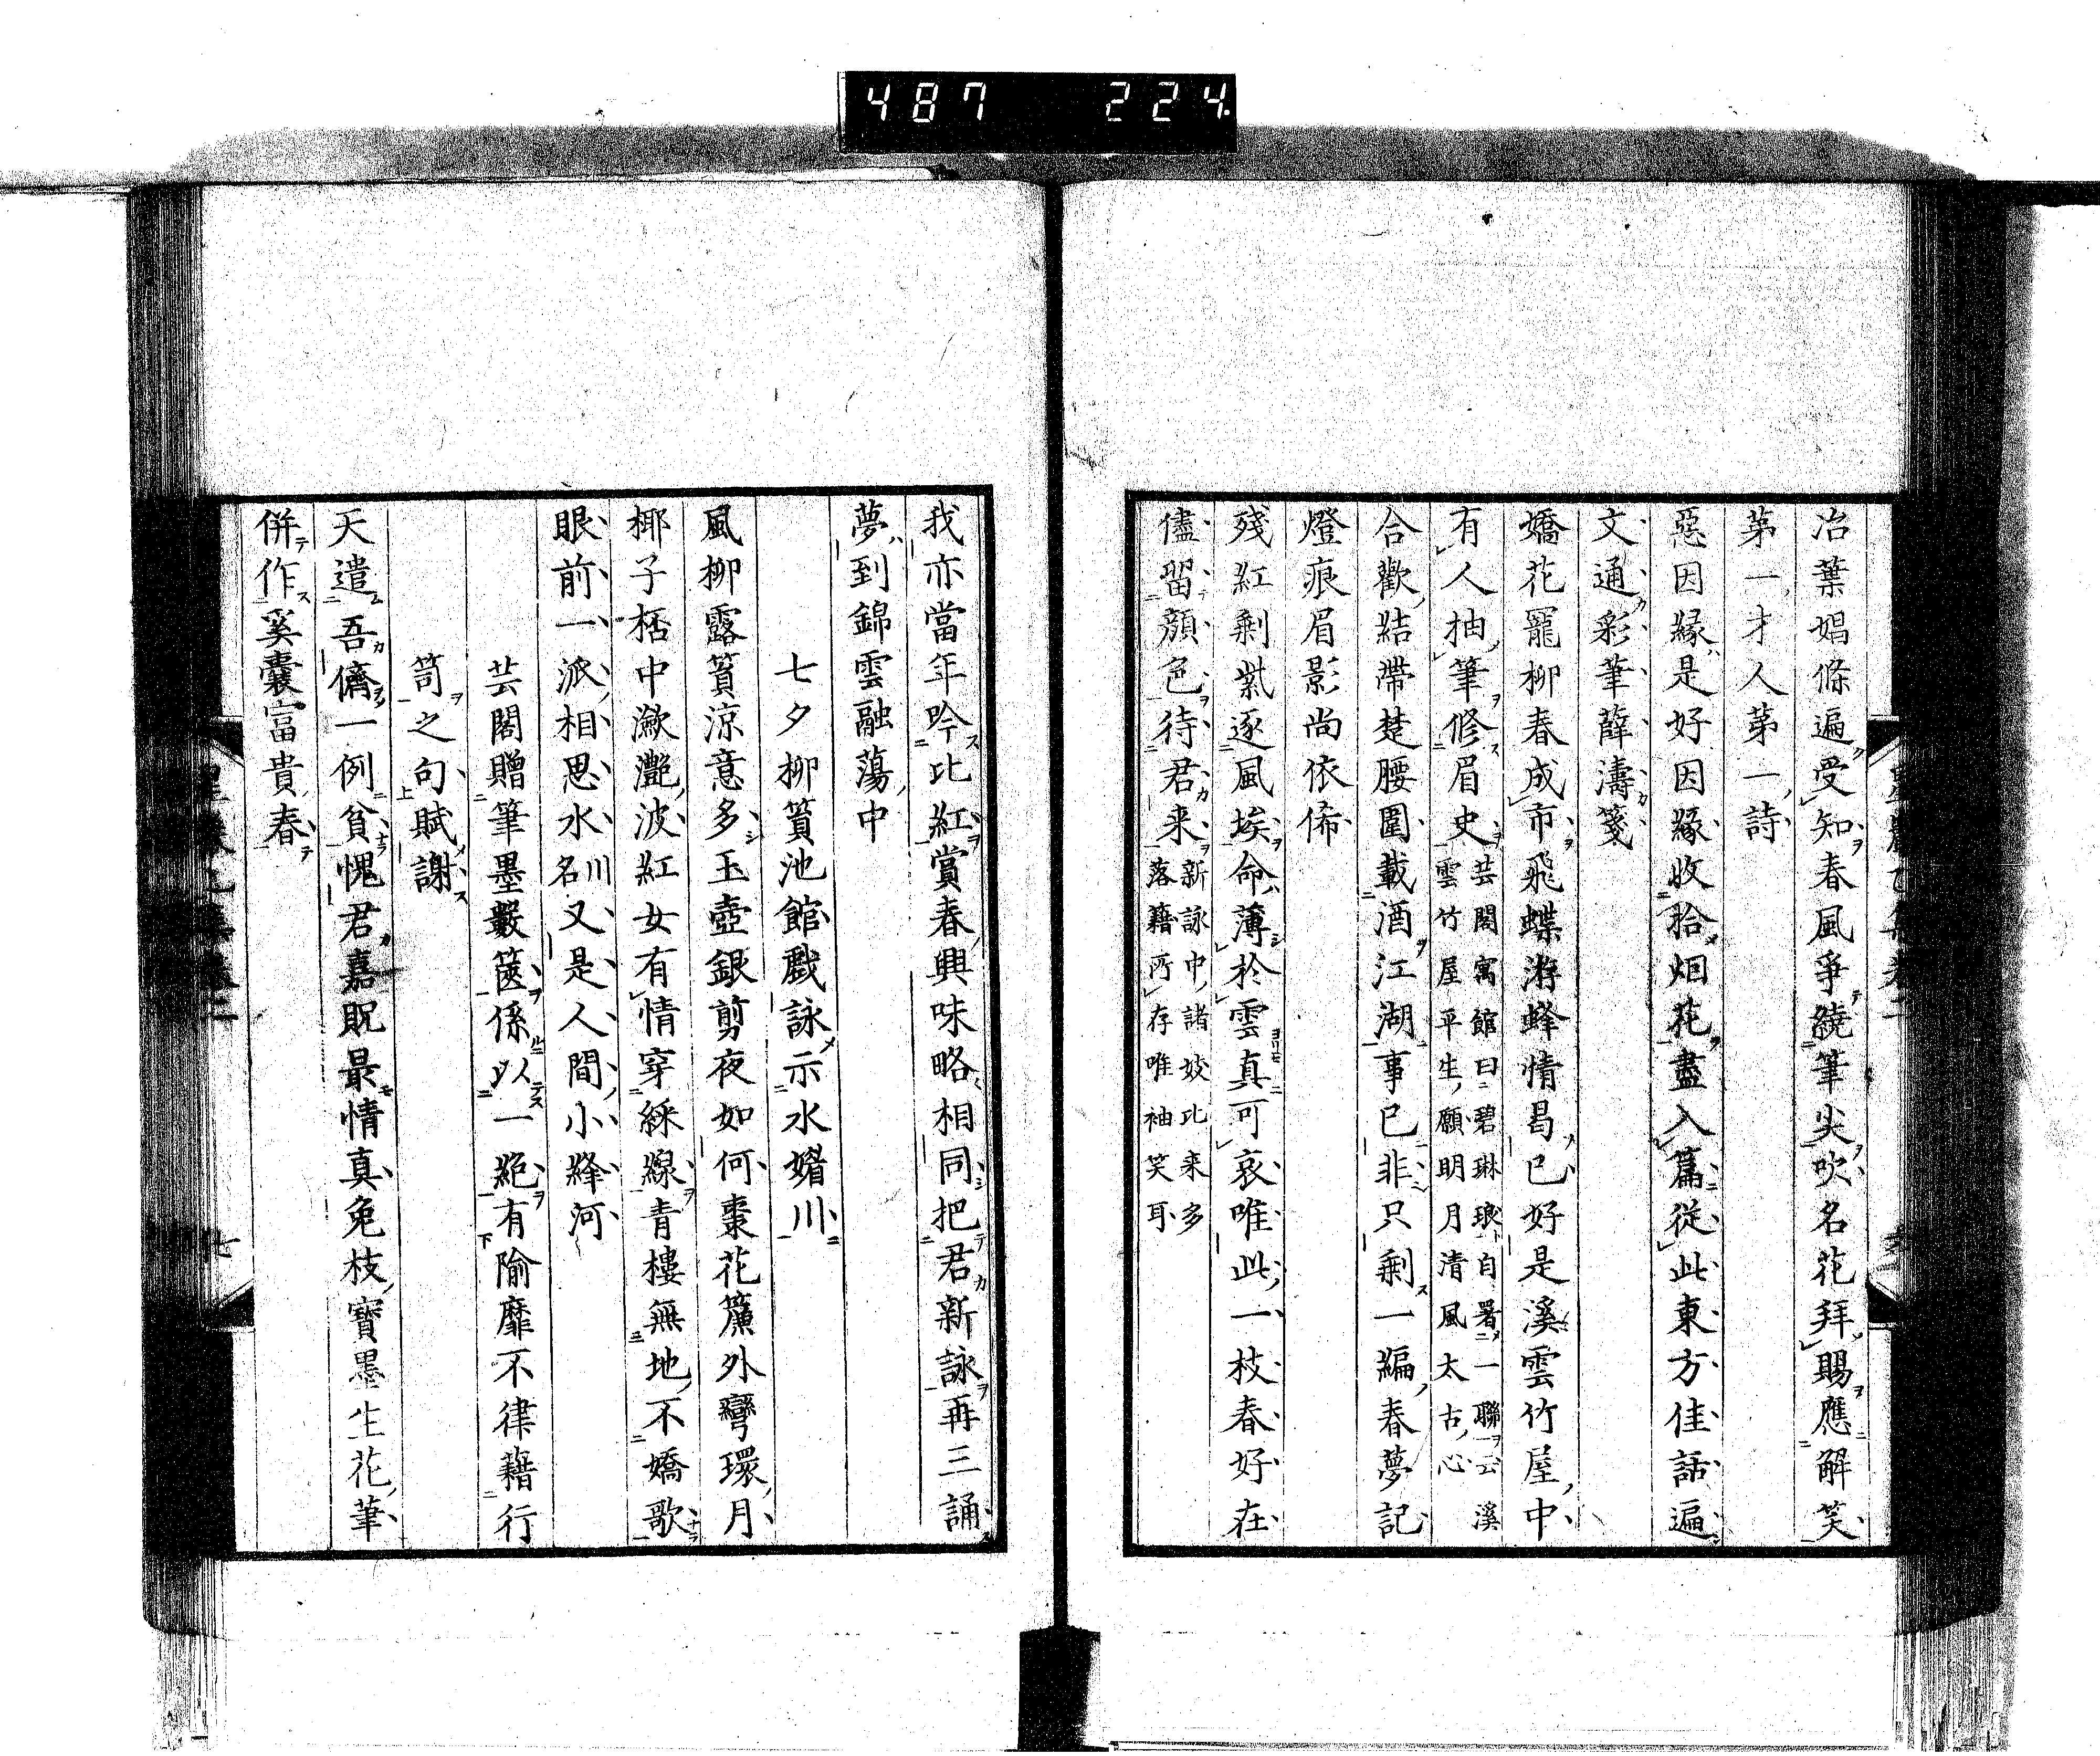 487 224
冶葉娼條遍受知春風爭繞筆尖吹名花拜賜應解笑
第一才人第一詩
惡因緣是好因緣收拾烟花盡入篇從此東方佳話遍
文通彩筆薛濤箋
嬌花寵柳春成市飛蝶游蜂情曷已好是溪雲竹屋中
有人抽筆修眉史
芸閣寓館曰碧琳瑯自署一聯云溪
雲竹屋平生願明月清風太古心
合歡結帶楚腰圍載酒江湖事已非只剩一編春夢記
燈痕眉影尚依俙
殘紅剩紫逐風埃命薄於雲真可哀唯此一枝春好在
儘留顏色待君来
新詠中諸妓比来多
落籍所存唯袖笑耳
我亦當年吟比紅賞春興味略相同把君新詠再三誦
夢到錦雲融蕩中
七夕柳篔池館戲詠示水媚川
風柳露篔涼意多玉壺銀剪夜如何棗花簾外彎環月
椰子栝中瀲灧波紅女有情穿綵線青樓無地不嬌歌
眼前一派相思水
川
名
又是人間小絳河
芸閣贈筆墨數篋係以一絕有隃麋不律藉行
笥之句賦謝
天遣吾儕一例貧愧君嘉貺最情真兔枝寶墨生花筆
併作奚囊富貴春